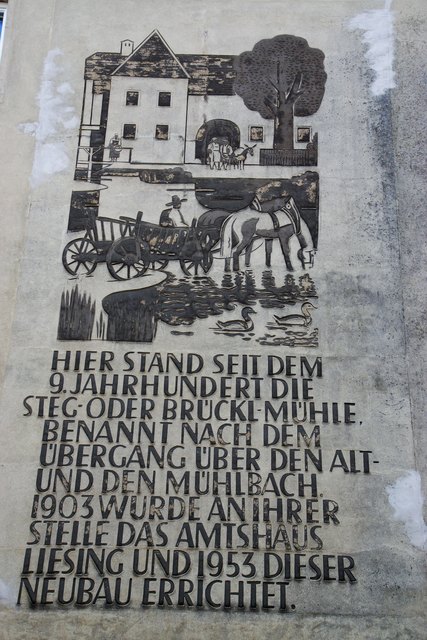 HIER STAND SEIT DEM
9. JAHRHUNDERT DIE
STEG- ODER BRÜCKL-MÜHLE,
BENANNT NACH DEM
ÜBERGANG ÜBER DEN ALT-
UND DEN MÜHLBACH.
1903 WURDE AN IHRER
STELLE DAS AMTSHAUS
LIESING UND 1953 DIESER
NEUBAU ERRICHTET.